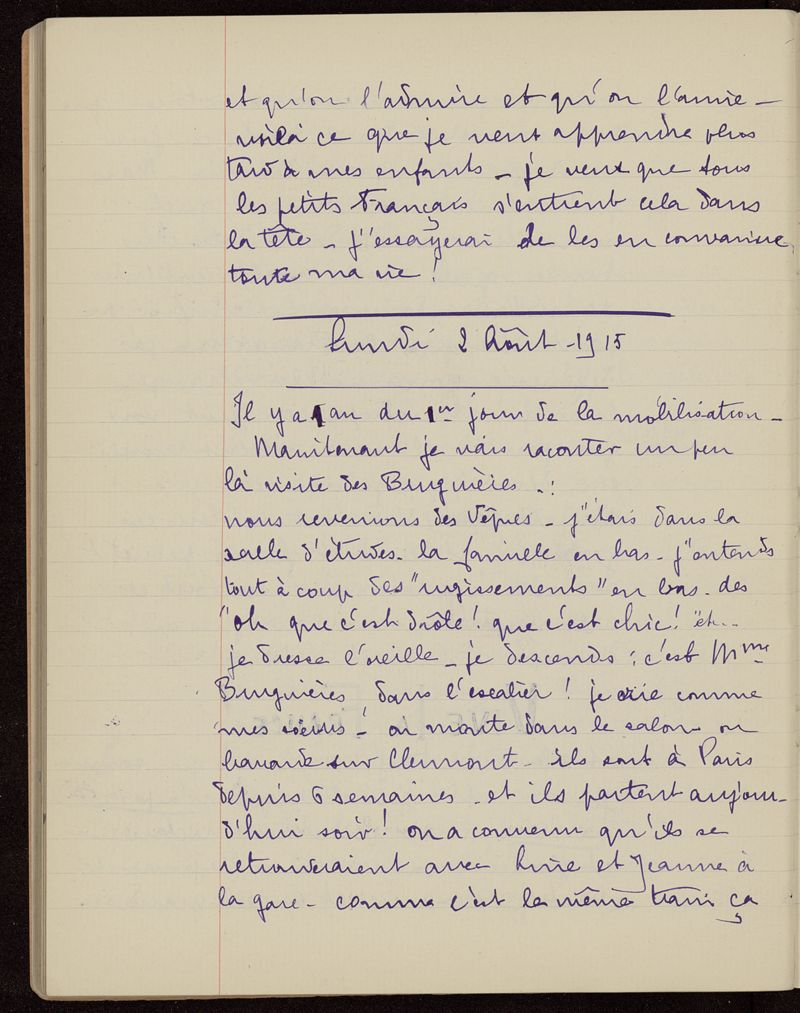 et qu'on l'admire et qu'on l'aime –
voilà ce que je veux apprendre plus
tard à mes enfants – je veux que tous
les petits Français s'entrent cela dans
la tête – j'essayerai de les en convaincre
toute ma vie !
Lundi 2 Août – 1915
Il y a 1 an du 1er jour de la mobilisation –
Maintenant je vais raconter un peu
la visite des Bruguières . :
nous revenions des Vêpres – j'étais dans la
salle d'études. la famille en bas – j'entends
tout à coup des "rugissements" en bas – des
"oh que c'est drôle ! que c'est chic ! " et...
je dresse l'oreille – je descends : c'est Mme
Bruguières dans l'escalier ! je crie comme
mes sœurs – ! on monte dans le salon – on
bavarde sur Clermont – ils sont à Paris
depuis 6 semaines – et ils partent aujour-
d'hui soir ! on a convenu qu'ils se
retrouveraient avec Line et Jeanne à
la gare – comme c'est le même train ça